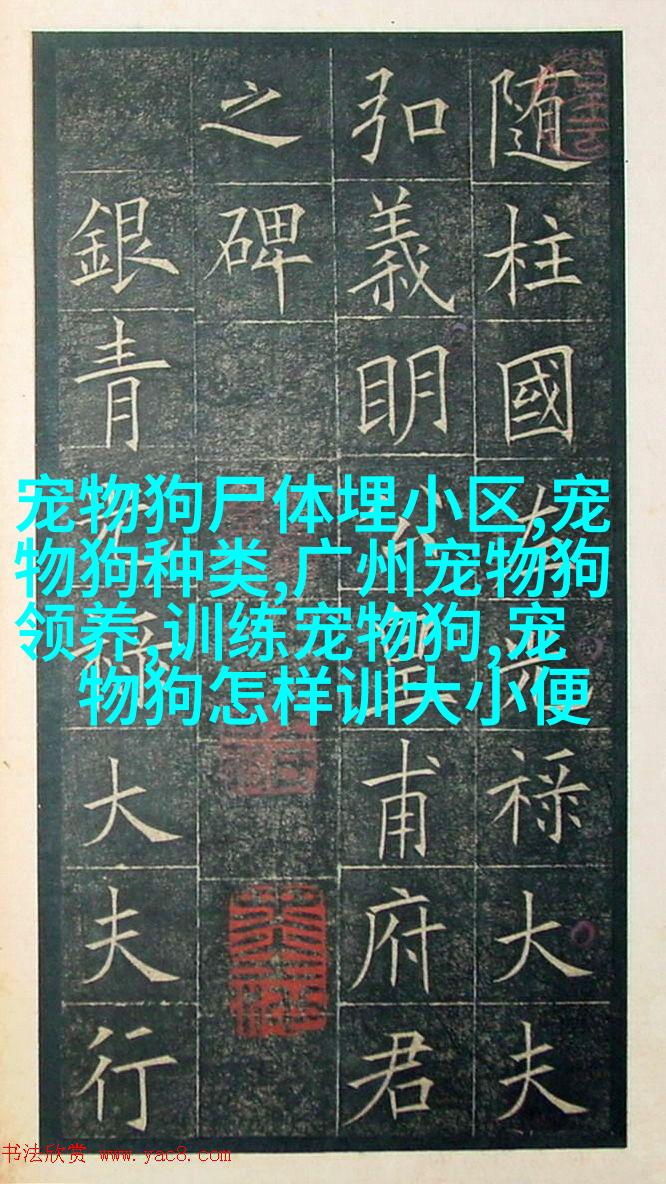 随柱國左光禄大夫
弘義眀公皇甫府君
之碑
銀青光禄大夫行
宠物狗尸体埋小区,宠
物狗种类,广州宠物狗
领养,训练宠物狗,宠
物狗怎样训大小便
书法欣赏 www.yac8.com